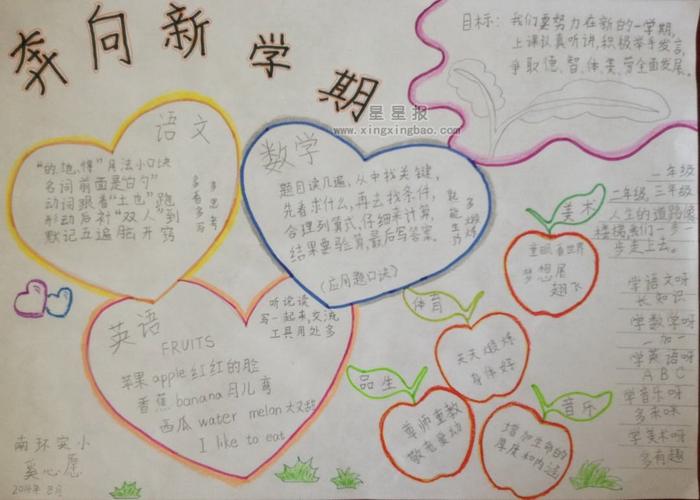 奔向新学期
目标：我们要努力在新的一学期，
上课认真听讲，积极举手发言，
争取德、智、体、美、劳全面发展。
星星报
www.xingxingbao.com
语文
"的、地、得"用法小口决
名词前面是"白勺"
动词跟着"土也"跑
形动后补"双人"到
默记五遍脑开窍
多思考
多看多写
数学
题目读几遍，从中找关键，
先看求什么，再去找条件，
合理列算式，仔细来计算，
结果要验算，最后写答案。
（应用题口诀）
多锻炼
就能生巧
英语
FRUITS
苹果 apple 红红的脸
香蕉 banana 月儿弯
西瓜 water melon 大又甜
I like to eat
听说读
写一起来，交流
工具用处多
美术
童眼看世界
梦想展
翅飞
体育
天天锻炼
身体好
品生
尊师重教
敬老爱幼
音乐
增加生命的
厚度和内涵
一年级
二年级，三年级
人生的道路像
楼梯我们一步
步走上去。
学语文呀
长知识
学数学呀
一加一
学英语呀
A B C
学音乐呀
多来咪
学美术呀
多有趣
南环实小
奚心愿